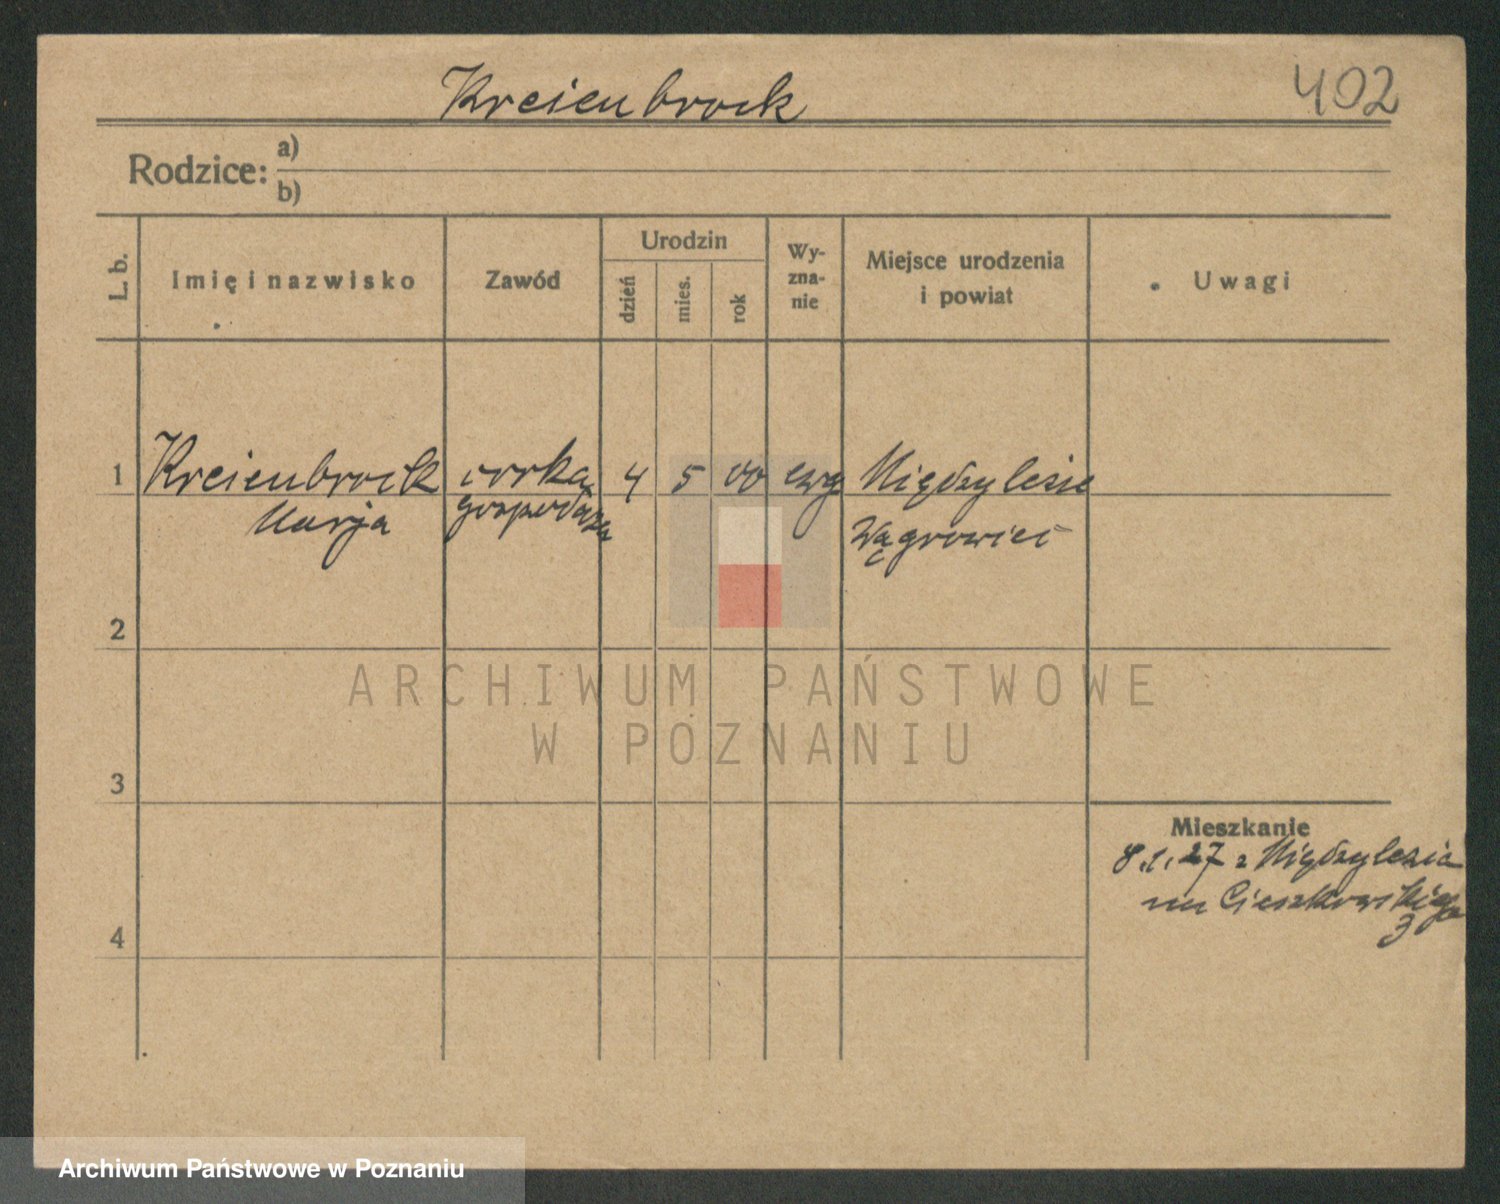 Kreienbrock
402
Rodzice: a)
b)
L. b.
Imię i nazwisko
Zawód
Urodzin
dzień
mies.
rok
Wy-
zna-
nie
Miejsce urodzenia
i powiat
Uwagi
1
Kreienbrock
Marja
córka
gospodarza
4
5
00
ewg
Międzylesie
Wągrowiec
2
3
4
Mieszkanie
8.1.27 z Międzylesia
Cieszkowskiego
3
ARCHIWUM PAŃSTWOWE
W POZNANIU
Archiwum Państwowe w Poznaniu